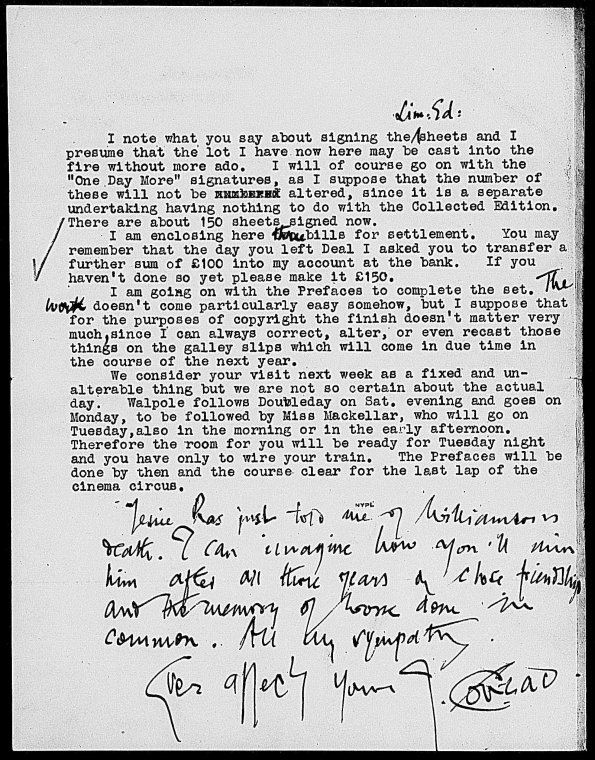 Lim. Ed:
I note what you say about signing the sheets and I
presume that the lot I have now here may be cast into the
fire without more ado. I will of course go on with the
"One Day More" signatures, as I suppose that the number of
these will not be altered, since it is a separate
undertaking having nothing to do with the Collected Edition.
There are about 150 sheets signed now.
I am enclosing here three bills for settlement. You may
remember that the day you left Deal I asked you to transfer a
further sum of £100 into my account at the bank. If you
haven't done so yet please make it £150.
I am going on with the Prefaces to complete the set. The
work doesn't come particularly easy somehow, but I suppose that
for the purposes of copyright the finish doesn't matter very
much, since I can always correct, alter, or even recast those
things on the galley slips which will come in due time in
the course of the next year.
We consider your visit next week as a fixed and un-
alterable thing but we are not so certain about the actual
day. Walpole follows Doubleday on Sat. evening and goes on
Monday, to be followed by Miss Mackellar, who will go on
Tuesday, also in the morning or in the early afternoon.
Therefore the room for you will be ready for Tuesday night
and you have only to wire your train. The Prefaces will be
done by then and the course clear for the last lap of the
cinema circus.
NYPL
Jessie has just told me of Williamson's
death. I can imagine how you'll miss
him after all these years of close friendship
and the memory of done in
common. All my sympathy.
Ever affectly yours
J. Conrad